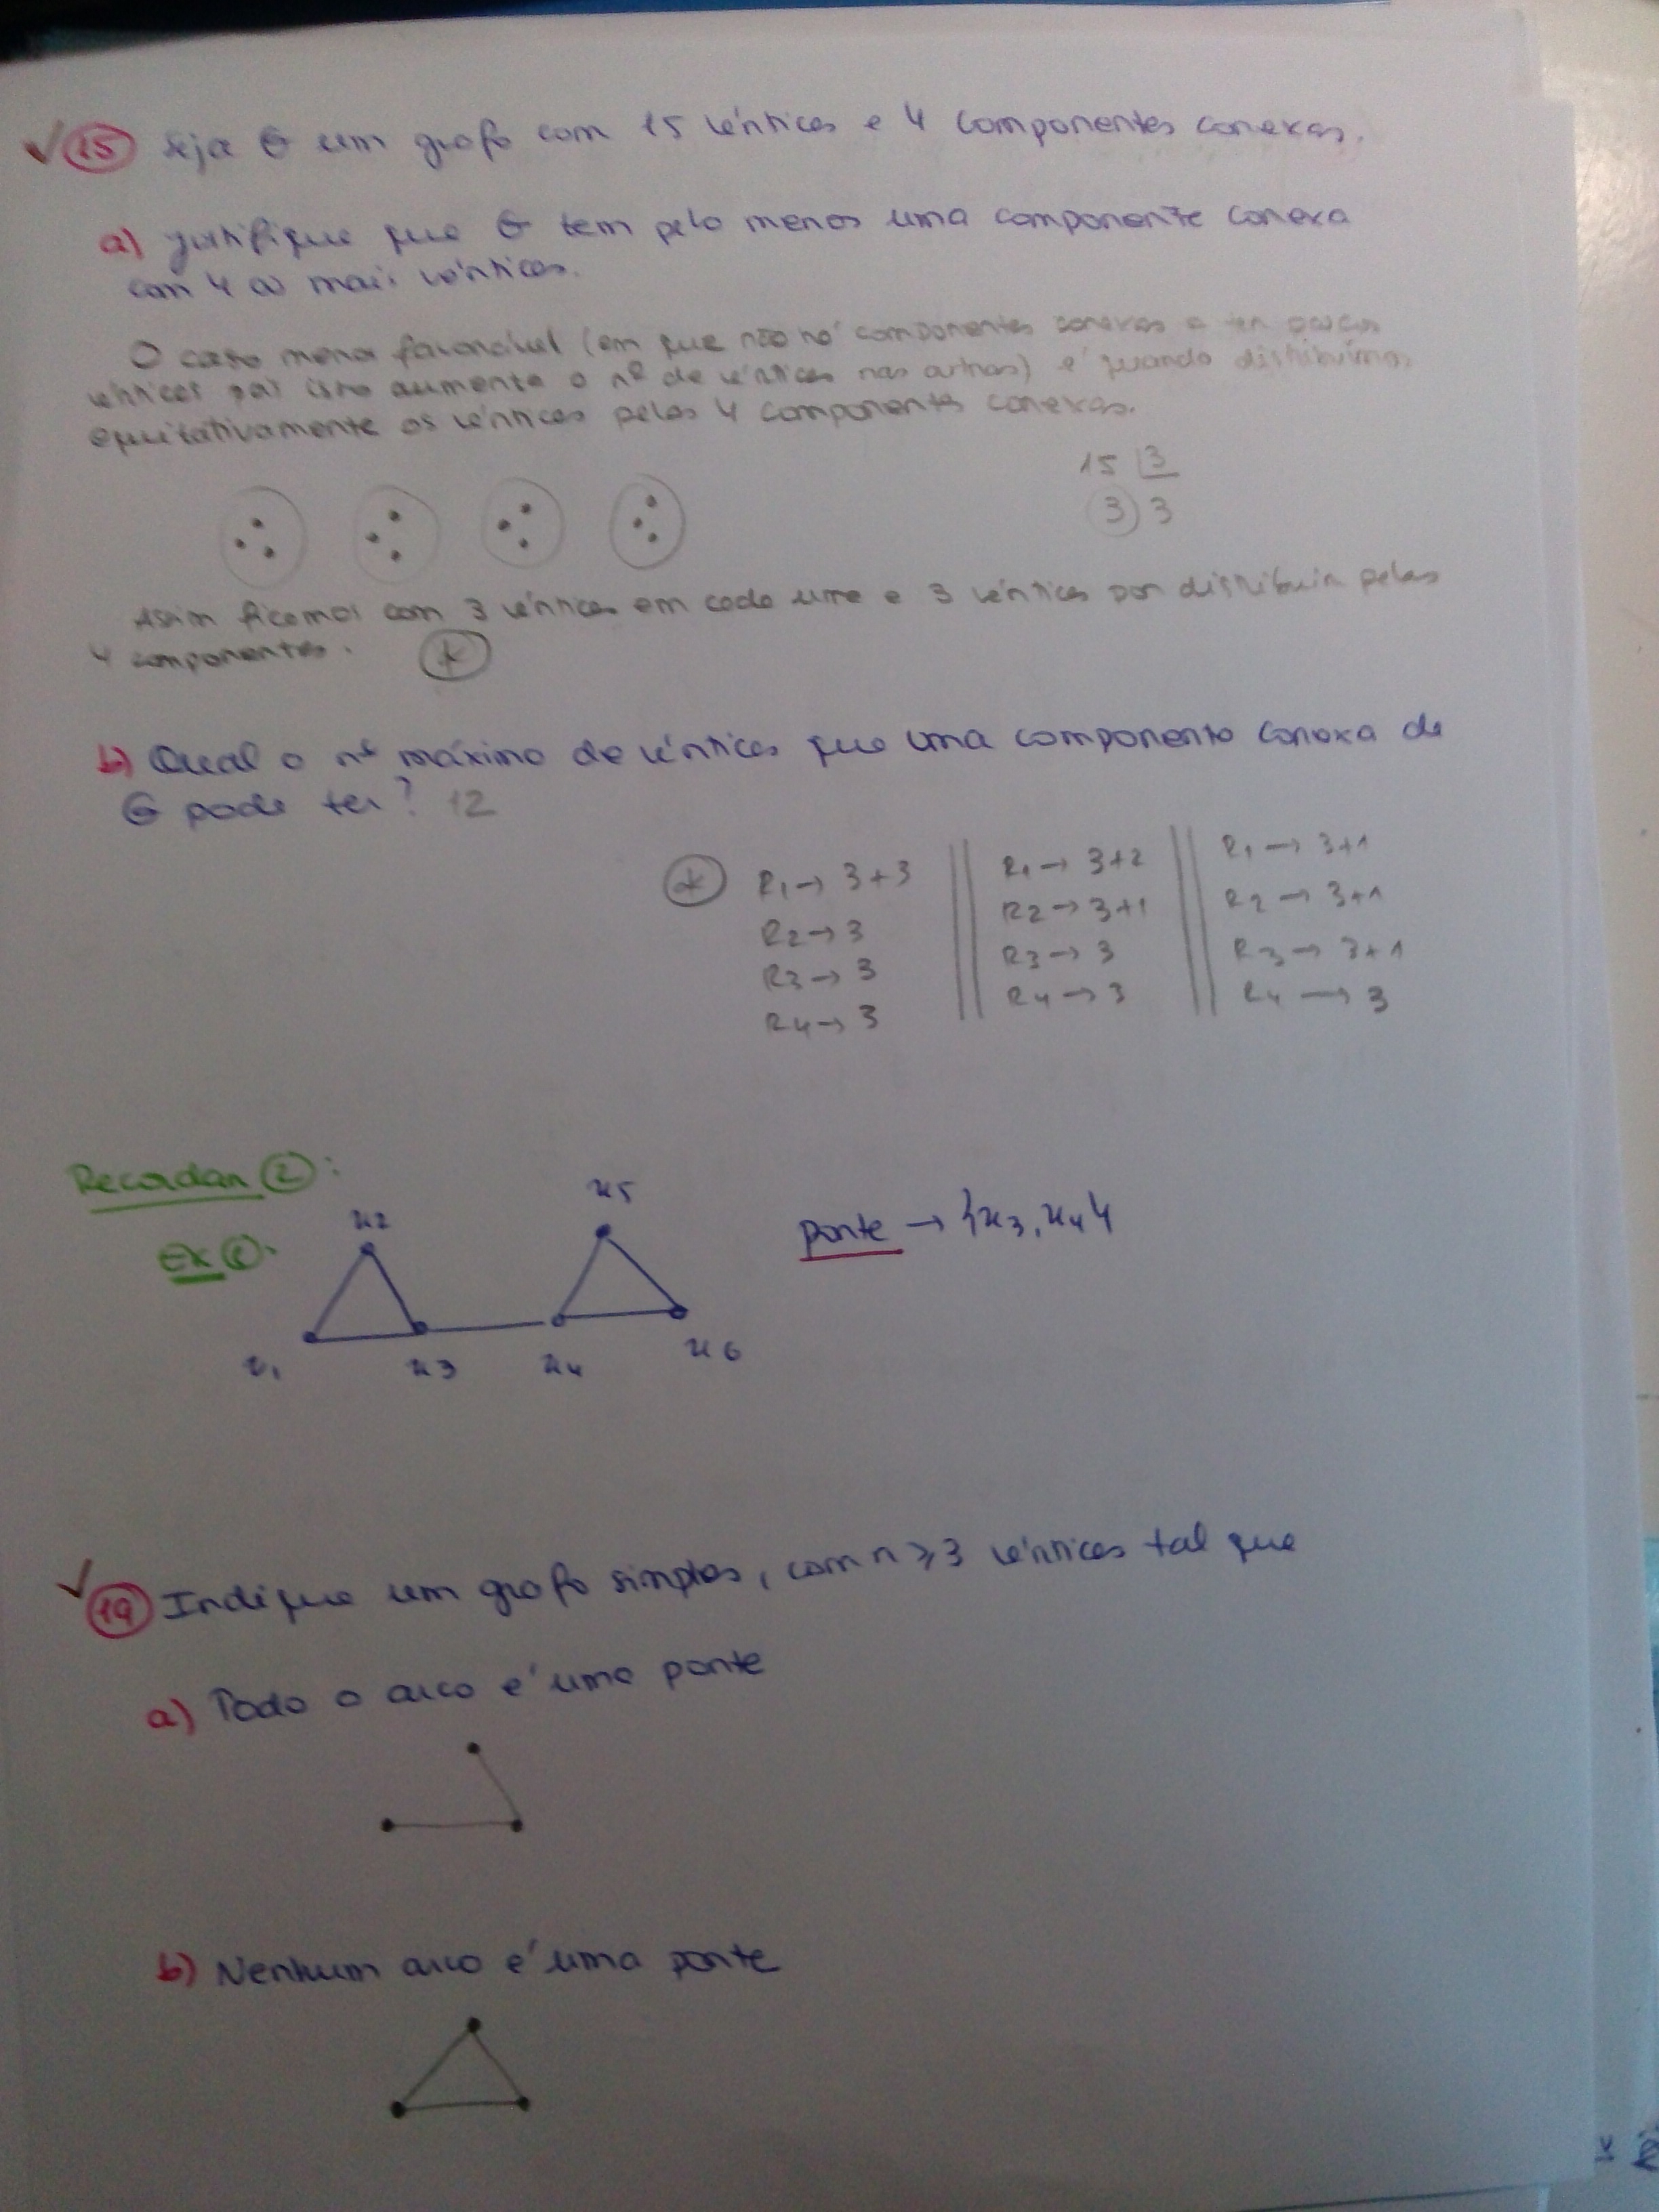 15 Seja G um grafo com 15 vértices e 4 componentes conexas.
a) Justifique que G tem pelo menos uma componente conexa
com 4 ou mais vértices.
O caso menos favorável (em que não há componentes conexas a ter poucos
vértices pois isso aumenta o nº de vértices nas outras) é quando distribuímos
equitativamente os vértices pelas 4 componentes conexas.
15 3
3 3
Assim ficamos com 3 vértices em cada uma e 3 vértices por distribuir pelas
4 componentes. *
b) Qual o nº máximo de vértices que uma componente conexa de
G pode ter? 12
* R1 → 3+3 || R1 → 3+2 || R1 → 3+1
R2 → 3 || R2 → 3+1 || R2 → 3+1
R3 → 3 || R3 → 3 || R3 → 3+1
R4 → 3 || R4 → 3 || R4 → 3
Recordar 2:
Ex
x2 x5
ponte → {x3, x4}
x1 x3 x4 x6
19 Indique um grafo simples, com n ≥ 3 vértices tal que
a) Todo o arco é uma ponte
b) Nenhum arco é uma ponte